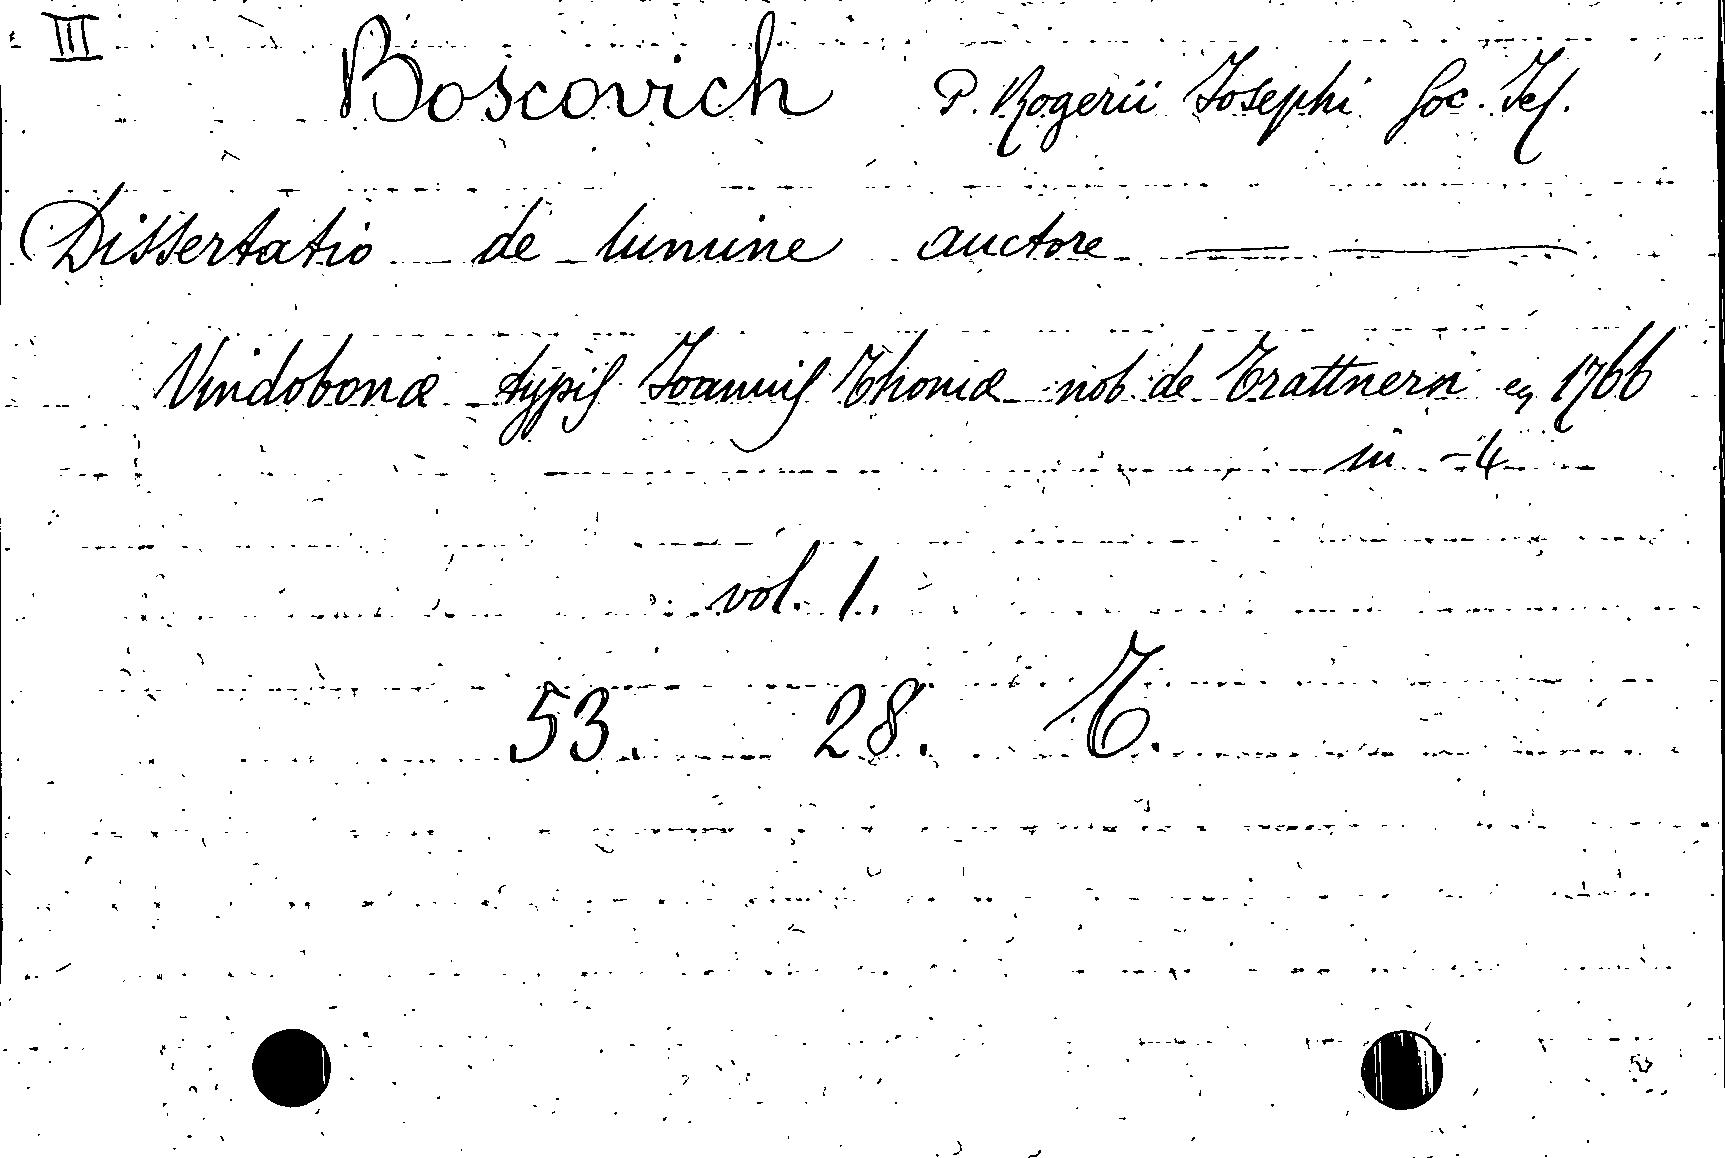 III
Boscovich P. Rogerii Josephi Soc. Jes.
Dissertatio de lumine auctore — —
Vindobonæ typis Joannis Thomæ nob. de Trattnern 1766
in -4
vol. 1.
53. 28. T.